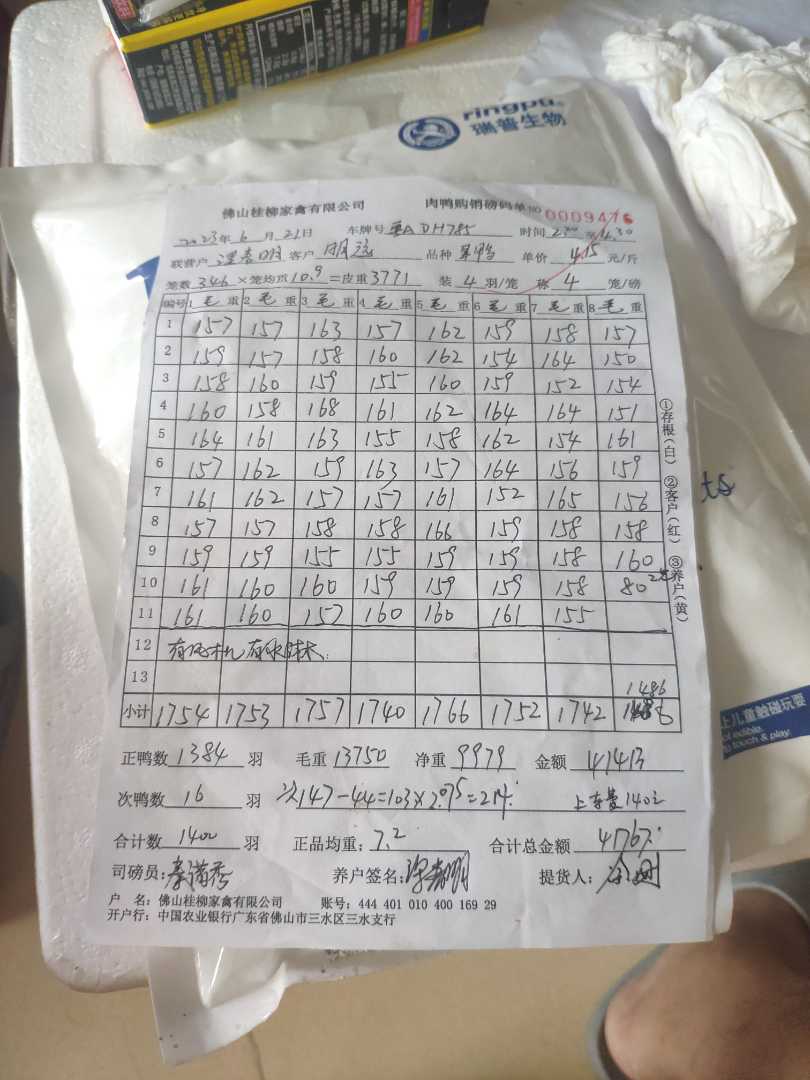 ringpu
瑞普生物
佛山桂柳家禽有限公司 肉鸭购销磅码单 NO 0009476
2023年6月21日 车牌号 粤A DH785 时间 2:30至4:30
联营户 客户 品种 单价 4.15 元/斤
笼数 346 ×笼均重 10.9 =皮重 3771 装 4 羽/笼 称 4 笼/磅
编号 1 毛 重 2 毛 重 3 毛 重 4 毛 重 5 毛 重 6 毛 重 7 毛 重 8 毛 重
1 157 157 163 157 162 159 158 157
2 159 157 158 160 162 154 164 150
3 158 160 159 155 160 159 152 154
4 160 158 168 161 162 164 164 151
5 164 161 163 155 158 162 154 161
6 157 162 159 163 157 164 156 159
7 161 162 157 157 161 152 165 156
8 157 157 158 158 166 159 158 158
9 159 159 155 155 159 159 158 160
10 161 160 160 159 159 159 158 80
11 161 160 157 160 160 161 155
12
13
1486
小计 1754 1753 1757 1740 1766 1752 1742
①存根(白) ②客户(红) ③养户(黄)
正鸭数 1384 羽 毛重 13750 净重 9979 金额 41413
次鸭数 16 羽 次147-44=103×2.075=214
合计数 1400 羽 正品均重: 7.2 合计总金额 41767
司磅员: 养户签名: 提货人:
户 名: 佛山桂柳家禽有限公司 账号: 444 401 010 400 169 29
开户行: 中国农业银行广东省佛山市三水区三水支行
上儿童触碰玩耍
edible.
to touch & play.
ts